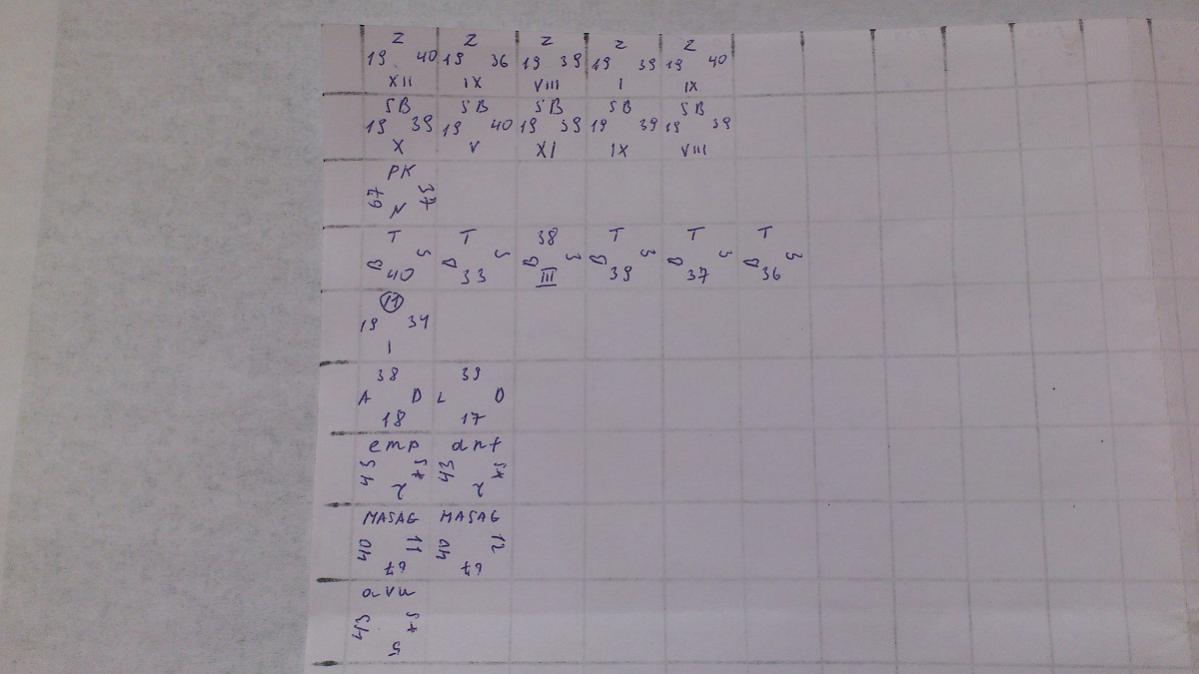 Z Z Z Z Z
19 40 19 36 19 39 19 39 19 40
XII IX VIII I IX
5B 5B 5B 5B 5B
19 39 19 40 19 39 19 39 19 39
X V XI IX VIII
PK
67 37
N
T T 38 T T T
B 5 B 5 B 5 B 5 B 5 B 5
40 33 III 39 37 36
11
19 34
I
38 39
A D L D
18 17
emp dnt
43 5x 43 5x
2 2
MASAG MASAG
40 11 40 12
67 67
avu
34 5x
5